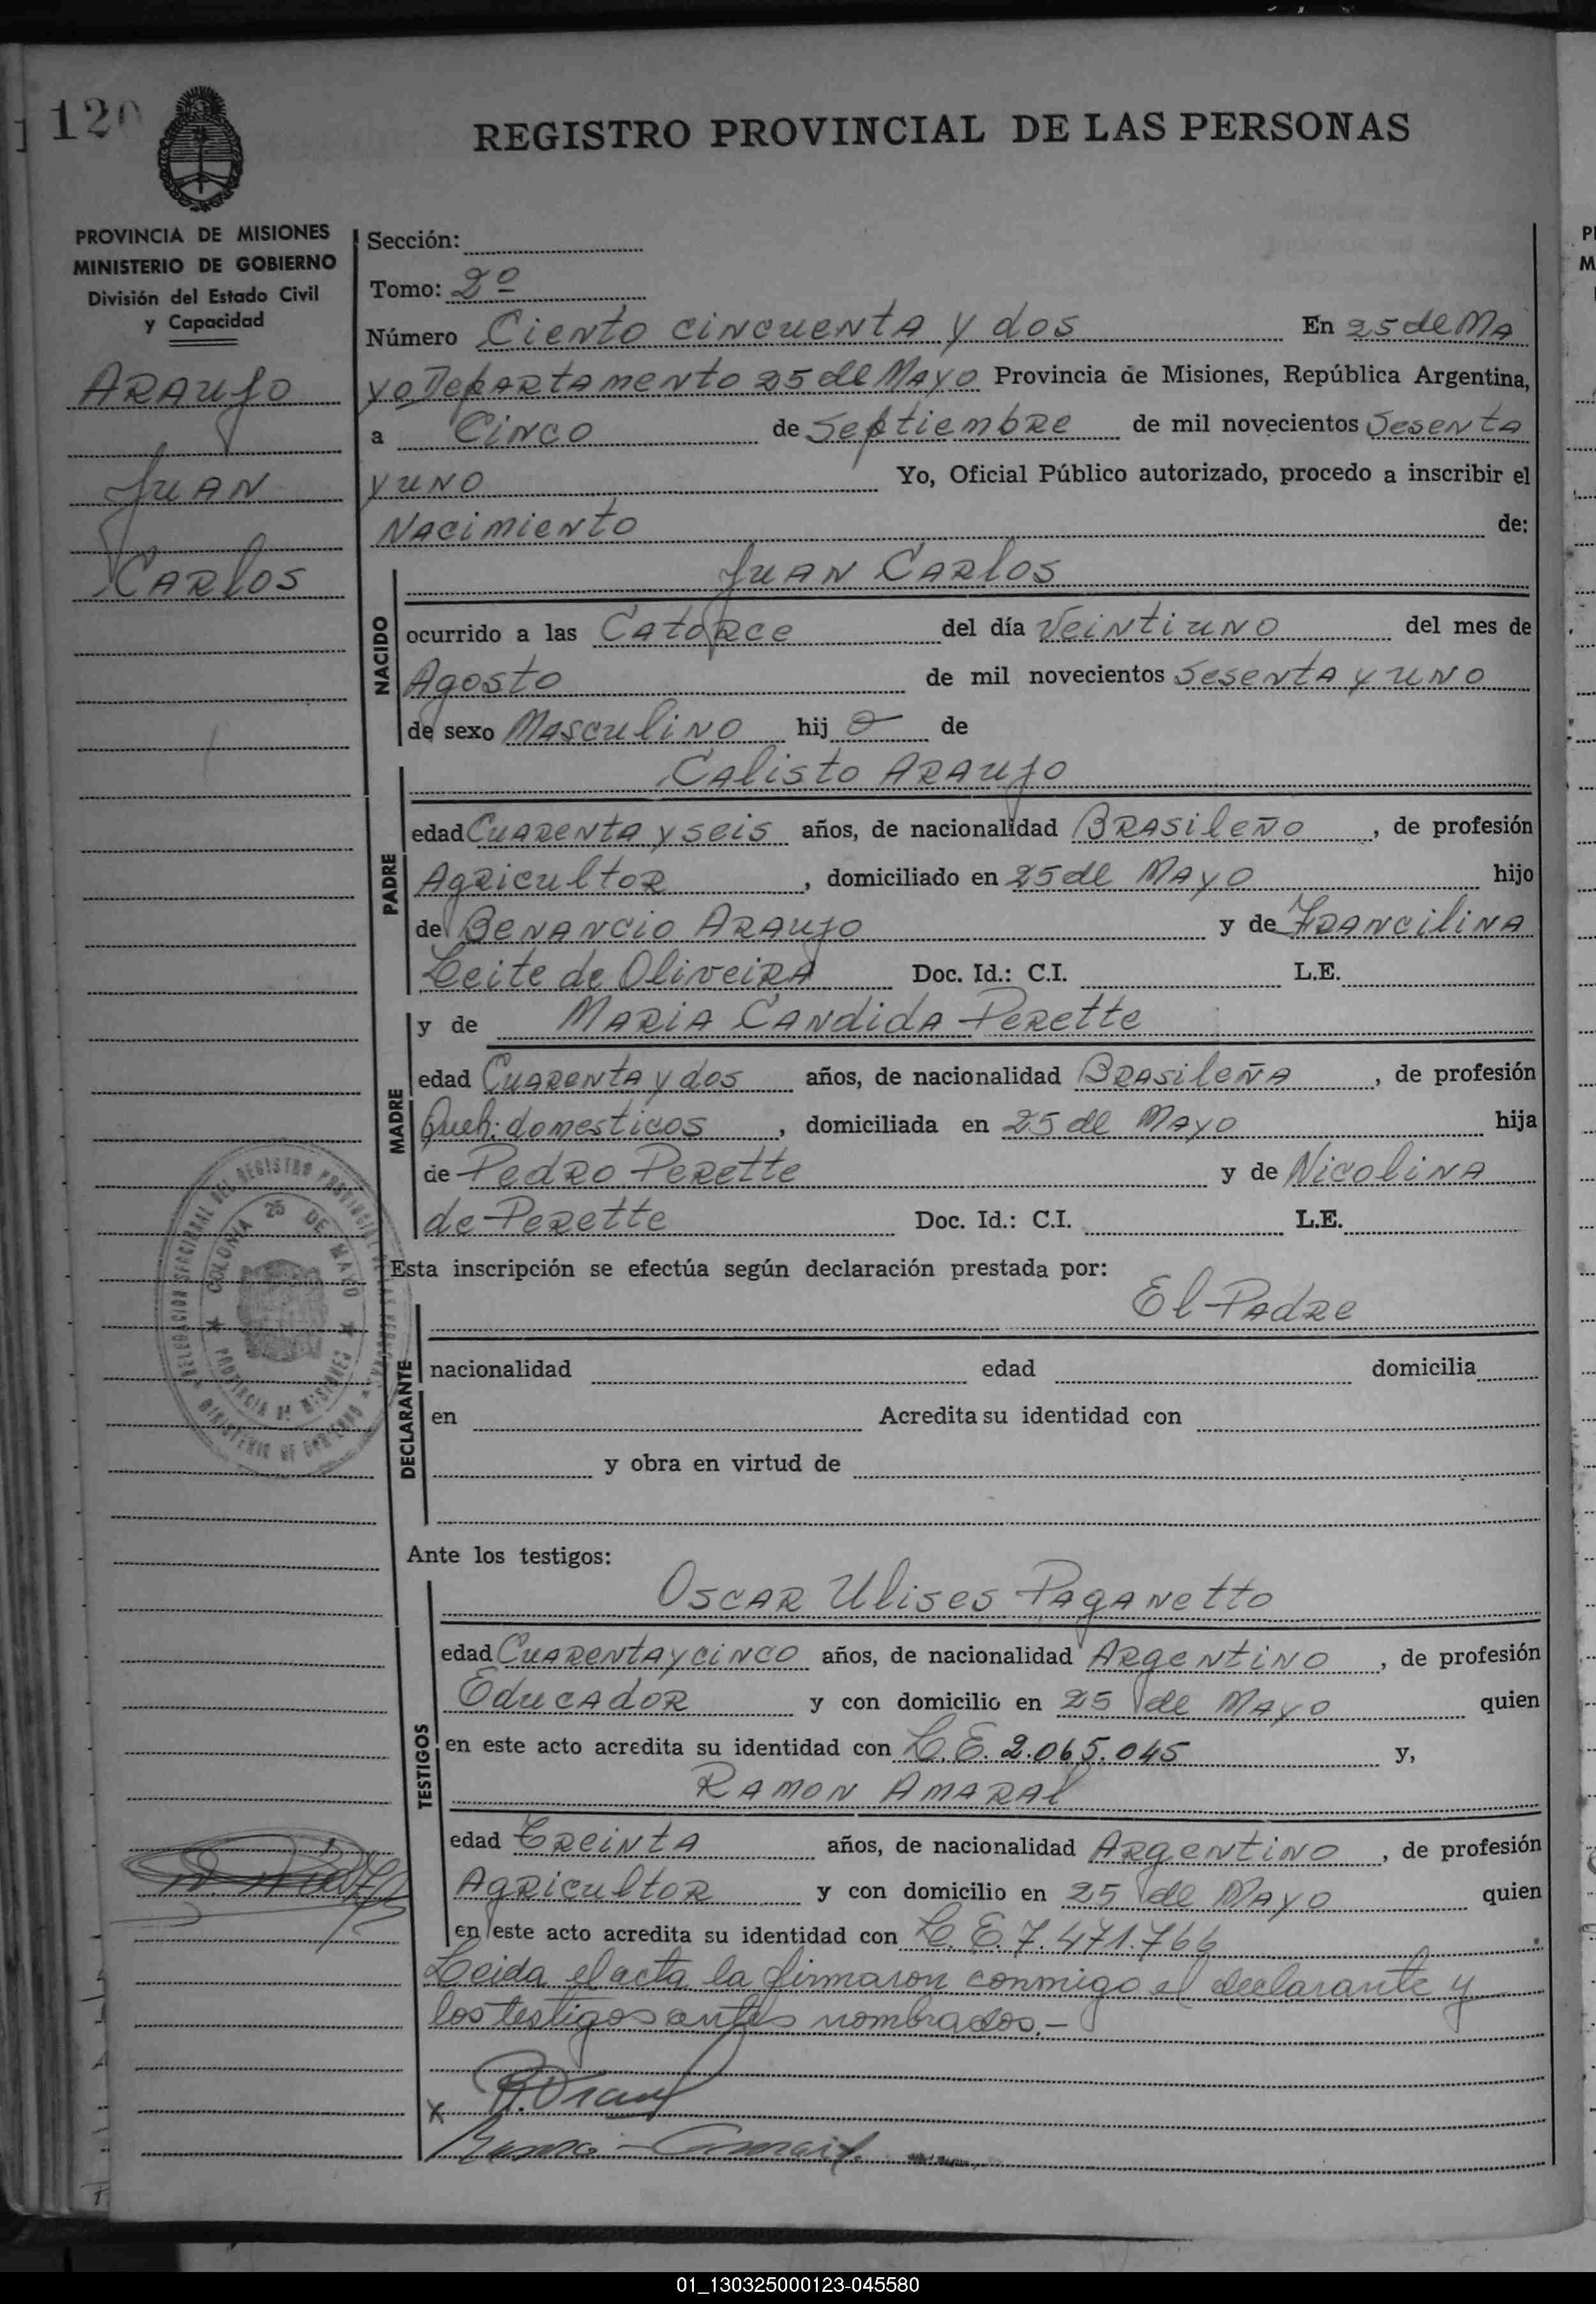 120
REGISTRO PROVINCIAL DE LAS PERSONAS
PROVINCIA DE MISIONES
MINISTERIO DE GOBIERNO
División del Estado Civil
y Capacidad
ARAUJO
JUAN
CARLOS
Sección:
Tomo: 2º
Número Ciento cincuenta y dos En 25 de MA
yo Departamento 25 de Mayo Provincia de Misiones, República Argentina,
a Cinco de Septiembre de mil novecientos Sesenta
y uno Yo, Oficial Público autorizado, procedo a inscribir el
Nacimiento de:
NACIDO
Juan Carlos
ocurrido a las Catorce del día Veintiuno del mes de
Agosto de mil novecientos Sesenta y uno
de sexo Masculino hij o de
PADRE
Calisto Araujo
edad Cuarenta y seis años, de nacionalidad Brasileño, de profesión
Agricultor, domiciliado en 25 de Mayo hijo
de Benancio Araujo y de Francilina
Leite de Oliveira Doc. Id.: C.I. L.E.
MADRE
y de Maria Candida Perette
edad Cuarenta y dos años, de nacionalidad Brasileña, de profesión
Queh: domesticos, domiciliada en 25 de Mayo hija
de Pedro Perette y de Nicolina
de Perette Doc. Id.: C.I. L.E.
DELEGACION SECCIONAL DEL REGISTRO PROVINCIAL
COLONIA 25 DE MAYO
PROVINCIA DE MISIONES
MINISTERIO DE GOBIERNO
Esta inscripción se efectúa según declaración prestada por:
DECLARANTE
El Padre
nacionalidad edad domicilia
en Acredita su identidad con
y obra en virtud de
Ante los testigos:
TESTIGOS
Oscar Ulises Paganetto
edad Cuarenta y cinco años, de nacionalidad Argentino, de profesión
Educador y con domicilio en 25 de Mayo quien
en este acto acredita su identidad con L.E. 2.065.045 y,
Ramon Amaral
edad Treinta años, de nacionalidad Argentino, de profesión
Agricultor y con domicilio en 25 de Mayo quien
en este acto acredita su identidad con L.E. 7.471.766.
Leida el acta la firmaron conmigo el declarante y
los testigos antes nombrados.-
x
01_130325000123-045580